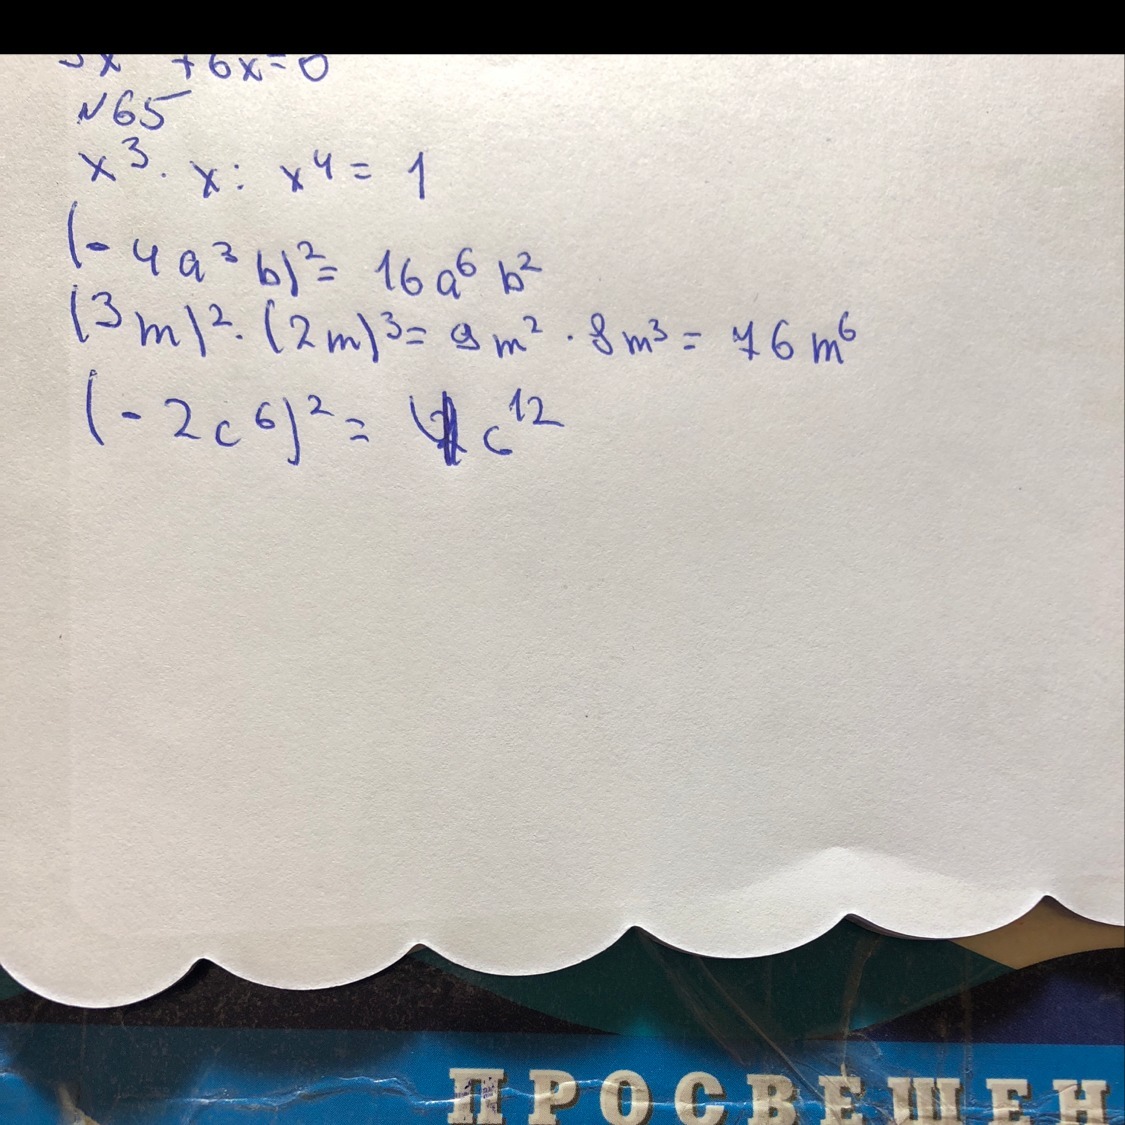 3x +6x=0
№65
x³ · x : x⁴ = 1
(-4a³b)² = 16a⁶b²
(3m)² · (2m)³ = 9m² · 8m³ = 76m⁶
(-2c⁶)² = 4c¹²
ПРОСВЕЩЕН